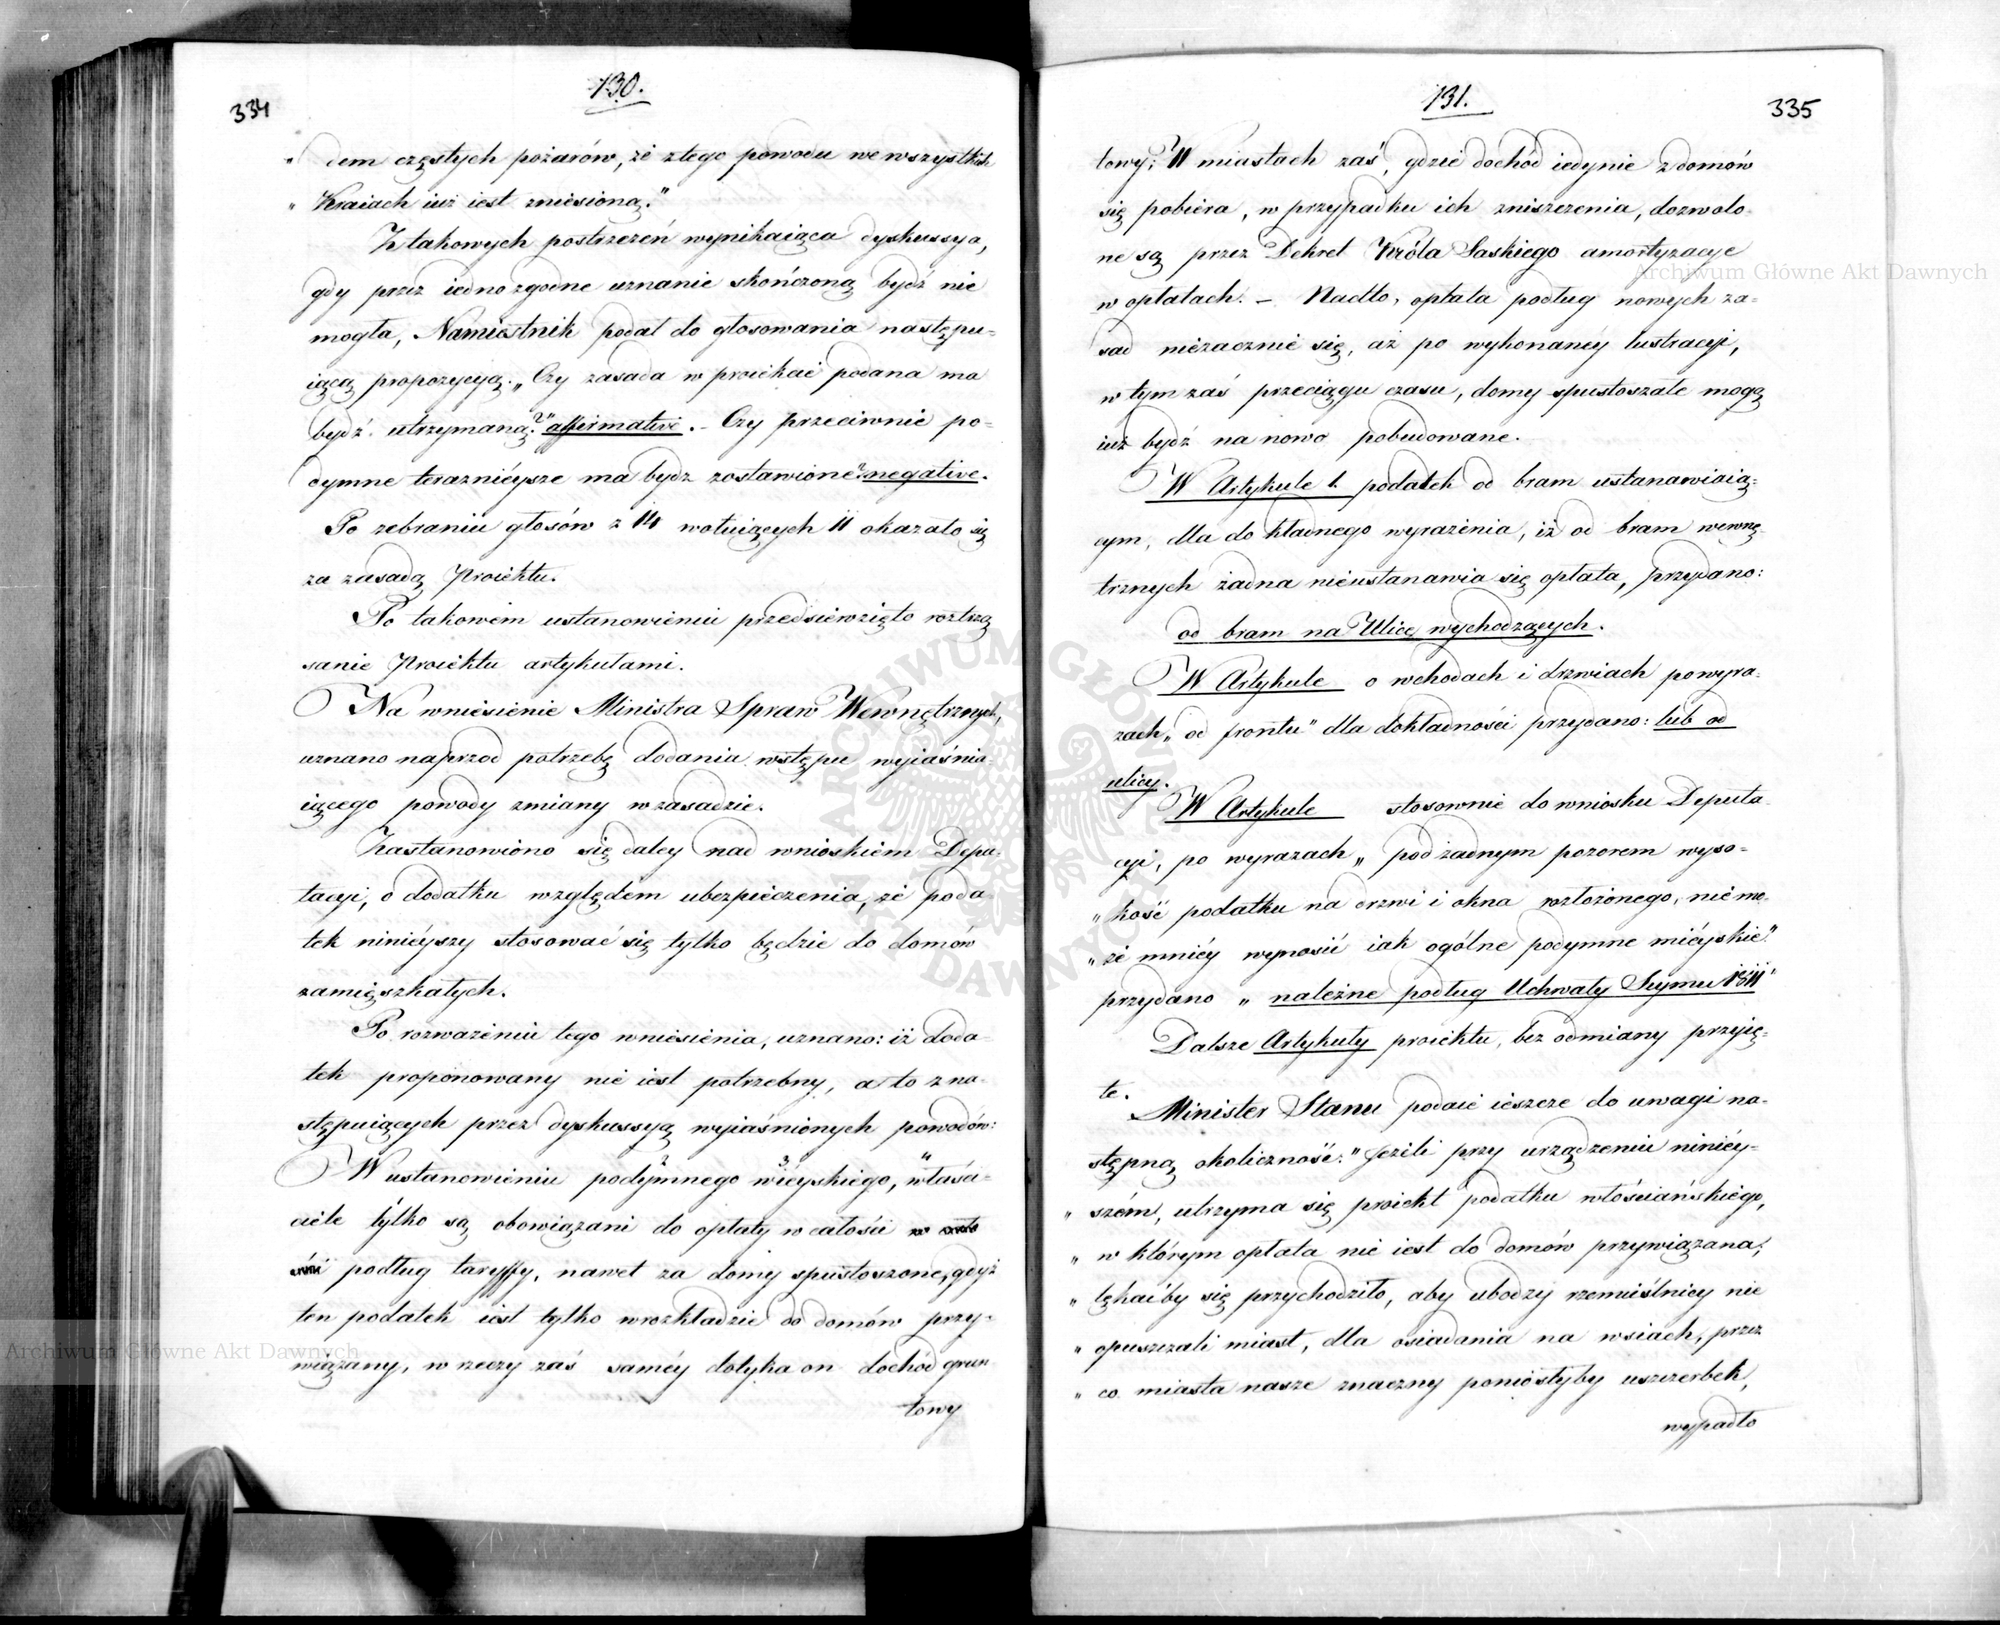 130.
334
„ dem częstych pożarów, że z tego powodu we wszystkich
„ Kraiach iuż iest zniesioną."
Z takowych postrzeżeń wynikaiąca dyskussya,
gdy przez iednozgodne uznanie skończoną bydź nie
mogła, Namiestnik podał do głosowania następu-
iącą propozycyą. „Czy zasada w proiekcie podana ma
bydź utrzymaną?" affirmative. – Czy przeciwnie po-
dymne teraznieysze ma bydz zostawione? negative.
Po zebraniu głosów z 14 wotuiących 11 okazało się
za zasadą Proiektu.
Po takowém ustanowieniu przedsięwzięto roztrzą
sanie Proiektu artykułami.
Na wniesienie Ministra Spraw Wewnętrznych,
uznano naprzod potrzebę dodania wstępu wyiaśnia-
iącego powody zmiany w zasadzie.
Zastanowiono się daley nad wnioskiem Depu-
tacyi, o dodatku względem ubezpieczenia, że poda-
tek ninieyszy stosować się tylko będzie do domów
zamięszkałych.
Po rozważeniu tego wniesienia, uznano: iż doda-
tek proponowany nie iest potrzebny, a to z na-
stępuiących przez dyskussyą wyiaśnionych powodów:
W ustanowieniu podymnego wieyskiego, właści-
ciele tylko są obowiązani do opłaty w całości
podług taryffy, nawet za domy spustoszone, gdyż
ten podatek iest tylko w rozkładzie do domów przy-
wiązany, w rzeczy zaś saméy dotyka on dochód grun-
towy
131.
335
towy; W miastach zaś, gdzie dochód iedynie z domów
się pobiera, w przypadku ich zniszczenia, dozwolo-
ne są przez Dekret Króla Saskiego amortyzacye
w opłatach. – Nadto, opłata podług nowych za-
sad niezacznie się, aż po wykonanéy lustracyi,
w tym zaś przeciągu czasu, domy spustoszałe mogą
iuż bydź na nowo pobudowane.
W Artykule 1. podatek od bram ustanawiaią-
cym, dla dokładnego wyrażenia, iż od bram wewnę-
trznych żadna nieustanawia się opłata, przydano:
od bram na Ulicę wychodzących.
W Artykule o wchodach i drzwiach po wyra-
zach „od frontu" dla dokładności przydano: lub od
ulicy.
W Artykule stosownie do wniosku Deputa-
cyi, po wyrazach „pod żadnym pozorem wyso-
„kość podatku na drzwi i okna rozłożonego, nie mo-
„że mniéy wynosić iak ogólne podymne mieyskie"
przydano „należne podług Uchwały Seymu 1811"
Dalsze Artykuły proiektu, bez odmiany przyię-
te.
Minister Stanu podaie ieszcze do uwagi na-
stępną okoliczność: „Jeżeli przy urządzeniu niniéy-
„ szém, utrzyma się proiekt podatku włościańskiego,
„ w którym opłata nie iest do domów przywiązana;
„ lękaćby się przychodziło, aby ubodzy rzemieślnicy nie
„ opuszczali miast, dla osiadania na wsiach, przez
„ co miasta nasze znaczny poniosłyby uszczerbek,
wypadło
ARCHIWUM GŁÓWNE AKT DAWNYCH
Archiwum Główne Akt Dawnych
Archiwum Główne Akt Dawnych